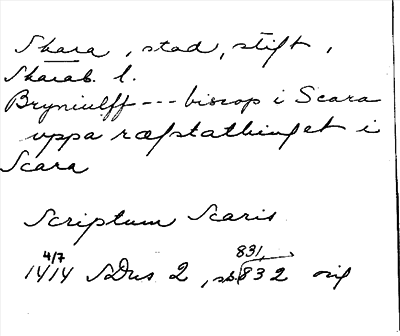 Skara, stad, stift,
Skarab. l.
Bryniulff --- biscop i Scara
vppa ræfstathinget i
Scara
Scriptum Scaris
4/7 831,
1414 SDns 2, sid 832 orig